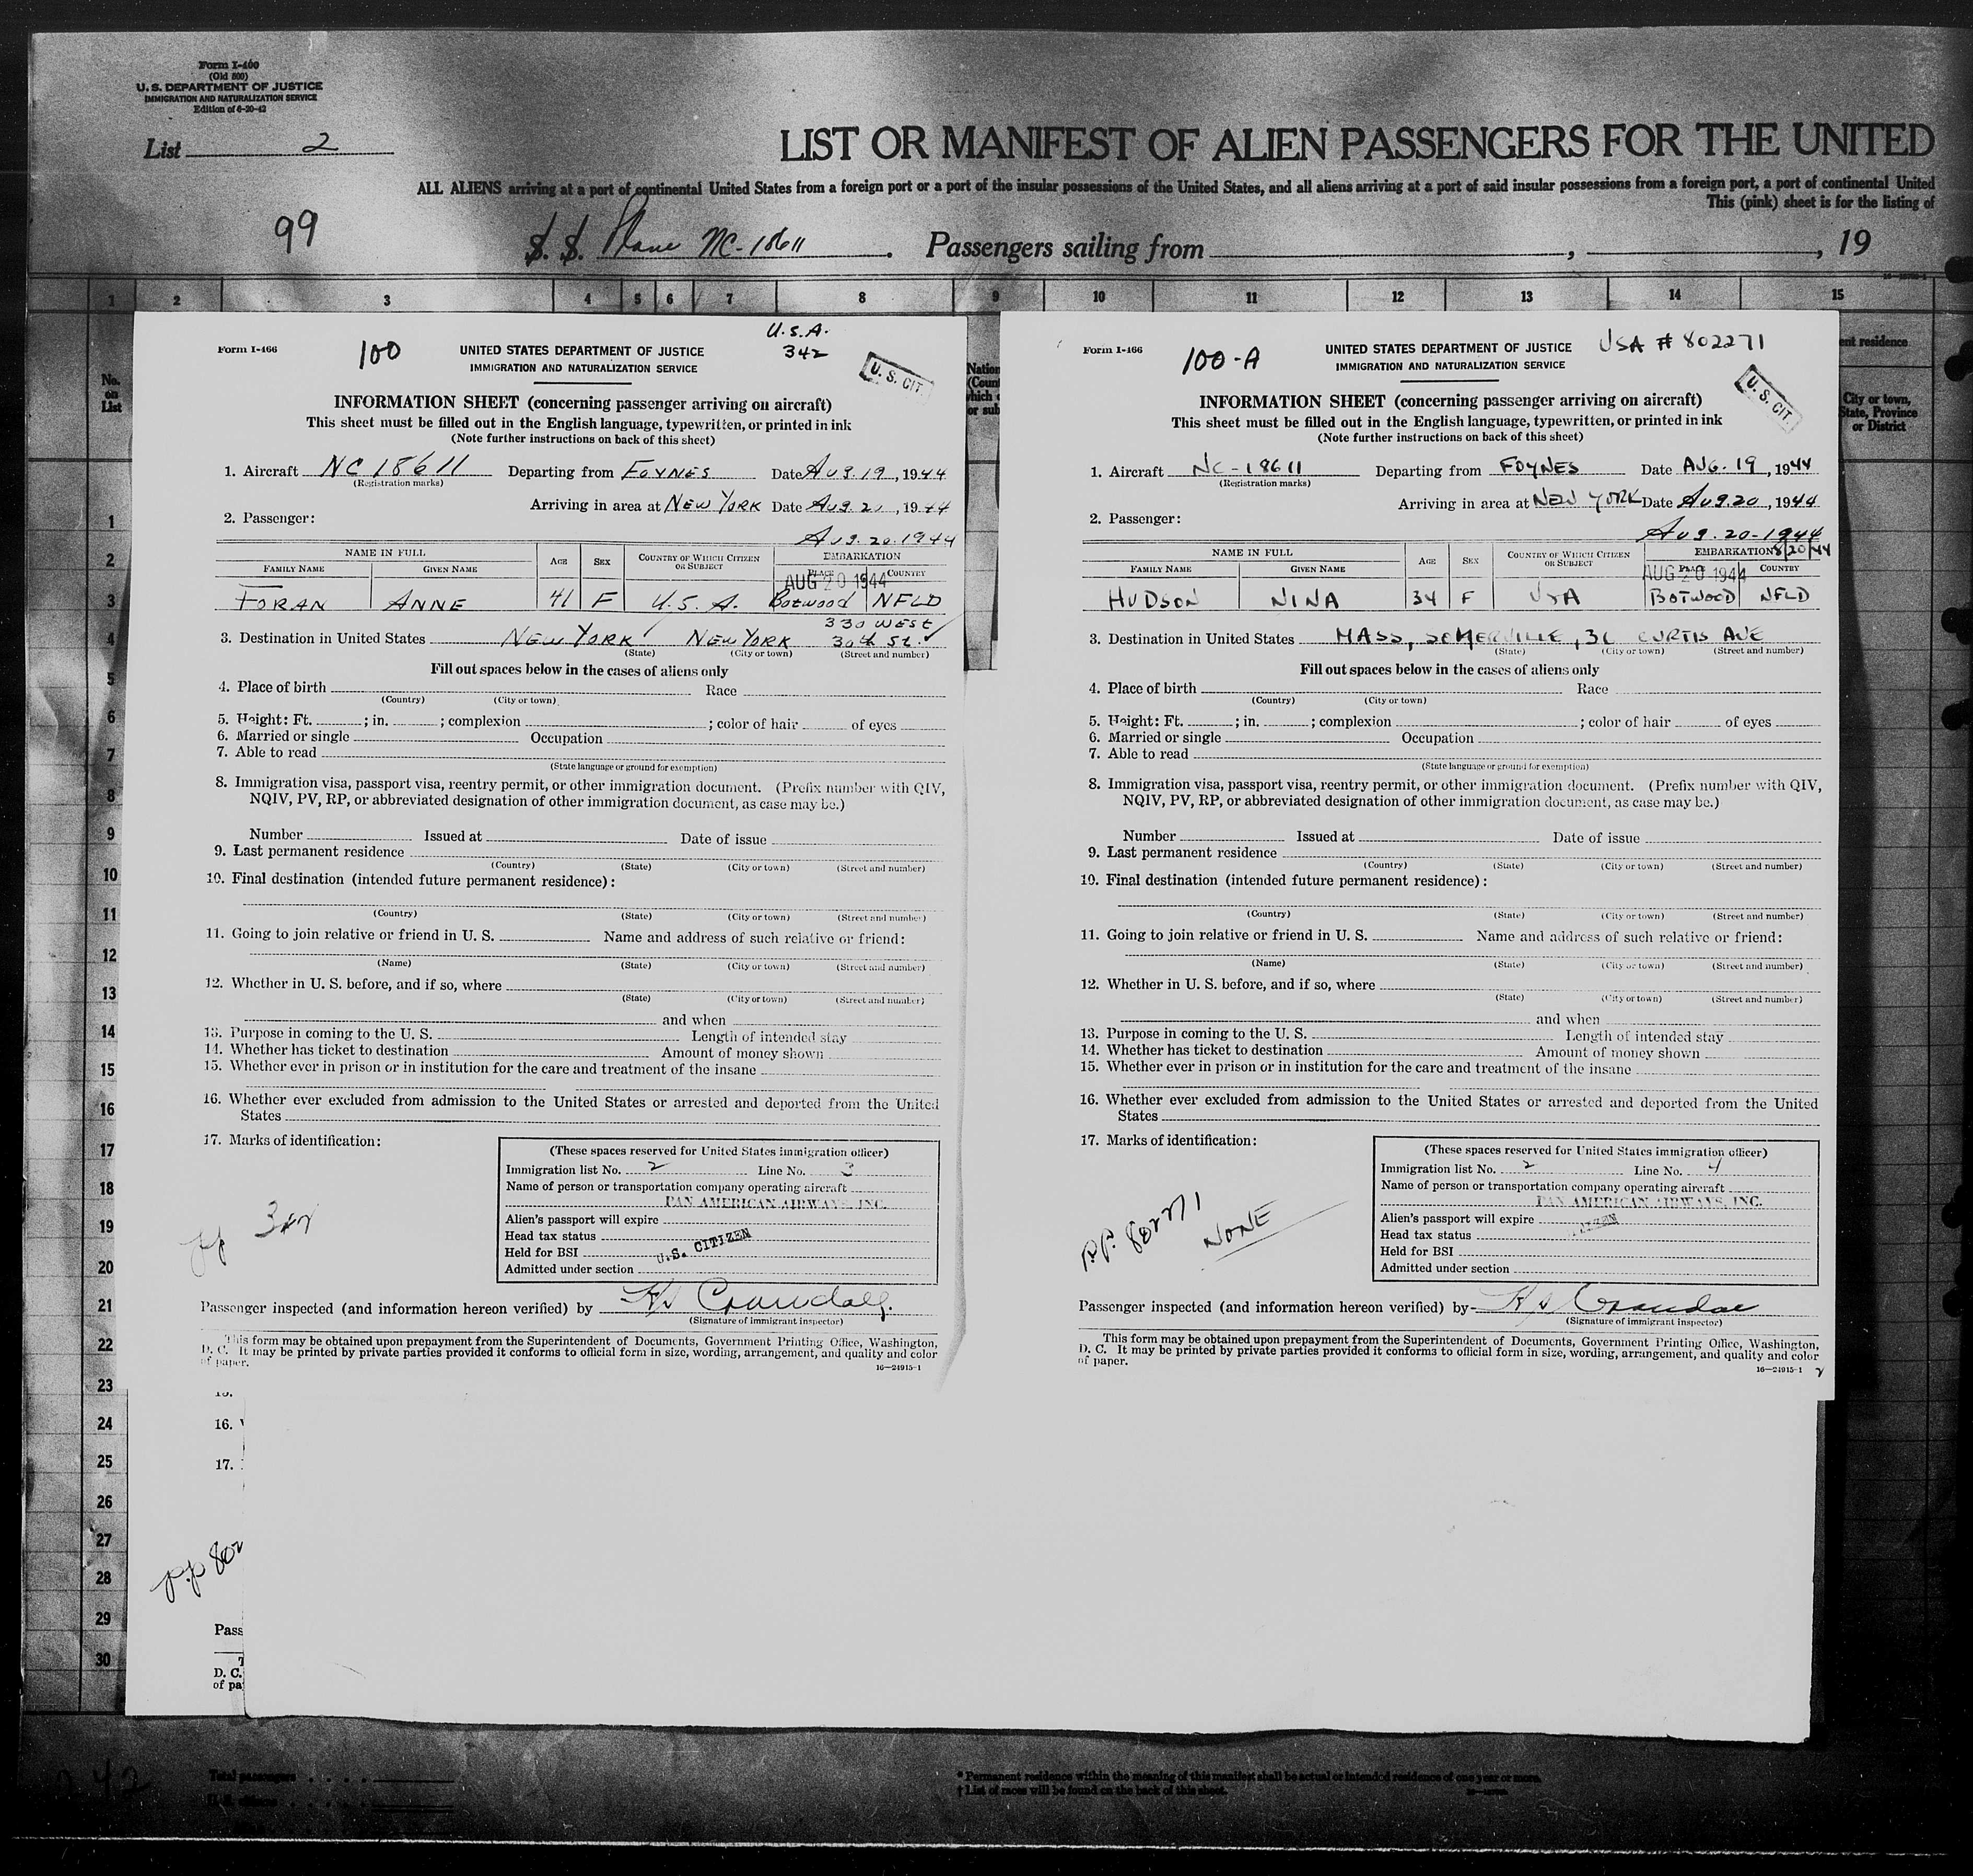 Form I-460
(Old 500)
U. S. DEPARTMENT OF JUSTICE
IMMIGRATION AND NATURALIZATION SERVICE
Edition of 6-20-42
List 2
LIST OR MANIFEST OF ALIEN PASSENGERS FOR THE UNITED
ALL ALIENS arriving at a port of continental United States from a foreign port or a port of the insular possessions of the United States, and all aliens arriving at a port of said insular possessions from a foreign port, a port of continental United
This (pink) sheet is for the listing of
99
S. S. Plane NC-18611. Passengers sailing from , , 19
1 2 3 4 5 6 7 8 9 10 11 12 13 14 15
No. on List
1
2
3
4
5
6
7
8
9
10
11
12
13
14
15
16
17
18
19
20
21
22
23
24
25
26
27
28
29
30
Form I-466
100
UNITED STATES DEPARTMENT OF JUSTICE
IMMIGRATION AND NATURALIZATION SERVICE
U.S.A.
342
U. S. CIT.
INFORMATION SHEET (concerning passenger arriving on aircraft)
This sheet must be filled out in the English language, typewritten, or printed in ink
(Note further instructions on back of this sheet)
1. Aircraft NC 18611 Departing from FOYNES Date Aug. 19, 1944
(Registration marks)
Arriving in area at NEW YORK Date Aug. 20, 1944
2. Passenger:
Aug. 20. 1944
NAME IN FULL AGE SEX COUNTRY OF WHICH CITIZEN OR SUBJECT EMBARKATION
FAMILY NAME GIVEN NAME PLACE COUNTRY
AUG 20 1944
FORAN ANNE 41 F U.S.A. Botwood NFLD
330 WEST
3. Destination in United States NEW YORK NEW YORK 30th St.
(State) (City or town) (Street and number)
Fill out spaces below in the cases of aliens only
4. Place of birth Race
(Country) (City or town)
5. Height: Ft. ; in. ; complexion ; color of hair of eyes
6. Married or single Occupation
7. Able to read
(State language or ground for exemption)
8. Immigration visa, passport visa, reentry permit, or other immigration document. (Prefix number with QIV,
NQIV, PV, RP, or abbreviated designation of other immigration document, as case may be.)
Number Issued at Date of issue
9. Last permanent residence
(Country) (State) (City or town) (Street and number)
10. Final destination (intended future permanent residence):
(Country) (State) (City or town) (Street and number)
11. Going to join relative or friend in U. S. Name and address of such relative or friend:
(Name) (State) (City or town) (Street and number)
12. Whether in U. S. before, and if so, where
(State) (City or town) (Street and number)
and when
13. Purpose in coming to the U. S. Length of intended stay
14. Whether has ticket to destination Amount of money shown
15. Whether ever in prison or in institution for the care and treatment of the insane
16. Whether ever excluded from admission to the United States or arrested and deported from the United
States
17. Marks of identification:
(These spaces reserved for United States immigration officer)
Immigration list No. 2 Line No. 3
Name of person or transportation company operating aircraft
PAN AMERICAN AIRWAYS, INC.
Alien's passport will expire
Head tax status
Held for BSI
U.S. CITIZEN
Admitted under section
pp 342
Passenger inspected (and information hereon verified) by Crandall
(Signature of immigrant inspector)
This form may be obtained upon prepayment from the Superintendent of Documents, Government Printing Office, Washington,
D. C. It may be printed by private parties provided it conforms to official form in size, wording, arrangement, and quality and color
of paper.
16—24915-1
16.
17.
pp 802
Pass
D. C.
of pa
Nation
(Coun
which
or sub
Form I-466
100-A
UNITED STATES DEPARTMENT OF JUSTICE
IMMIGRATION AND NATURALIZATION SERVICE
USA # 802271
U. S. CIT.
INFORMATION SHEET (concerning passenger arriving on aircraft)
This sheet must be filled out in the English language, typewritten, or printed in ink
(Note further instructions on back of this sheet)
1. Aircraft NC-18611 Departing from FOYNES Date AUG. 19, 1944
(Registration marks)
Arriving in area at NEW YORK Date Aug. 20, 1944
2. Passenger:
Aug. 20-1944
NAME IN FULL AGE SEX COUNTRY OF WHICH CITIZEN OR SUBJECT EMBARKATION 8/20/44
FAMILY NAME GIVEN NAME PLACE COUNTRY
AUG 20 1944
HUDSON NINA 34 F USA BOTWOOD NFLD
3. Destination in United States MASS, SOMERVILLE, 36 CURTIS AVE
(State) (City or town) (Street and number)
Fill out spaces below in the cases of aliens only
4. Place of birth Race
(Country) (City or town)
5. Height: Ft. ; in. ; complexion ; color of hair of eyes
6. Married or single Occupation
7. Able to read
(State language or ground for exemption)
8. Immigration visa, passport visa, reentry permit, or other immigration document. (Prefix number with QIV,
NQIV, PV, RP, or abbreviated designation of other immigration document, as case may be.)
Number Issued at Date of issue
9. Last permanent residence
(Country) (State) (City or town) (Street and number)
10. Final destination (intended future permanent residence):
(Country) (State) (City or town) (Street and number)
11. Going to join relative or friend in U. S. Name and address of such relative or friend:
(Name) (State) (City or town) (Street and number)
12. Whether in U. S. before, and if so, where
(State) (City or town) (Street and number)
and when
13. Purpose in coming to the U. S. Length of intended stay
14. Whether has ticket to destination Amount of money shown
15. Whether ever in prison or in institution for the care and treatment of the insane
16. Whether ever excluded from admission to the United States or arrested and deported from the United
States
17. Marks of identification:
(These spaces reserved for United States immigration officer)
Immigration list No. 2 Line No. 4
Name of person or transportation company operating aircraft
PAN AMERICAN AIRWAYS, INC.
Alien's passport will expire
Head tax status
Held for BSI
Admitted under section
P.P. 802271
NONE
Passenger inspected (and information hereon verified) by
(Signature of immigrant inspector)
This form may be obtained upon prepayment from the Superintendent of Documents, Government Printing Office, Washington,
D. C. It may be printed by private parties provided it conforms to official form in size, wording, arrangement, and quality and color
of paper.
16—24915-1
ent residence
City or town,
State, Province
or District
Total passengers
* Permanent residence within the meaning of this manifest shall be actual or intended residence of one year or more.
† List of races will be found on the back of this sheet.